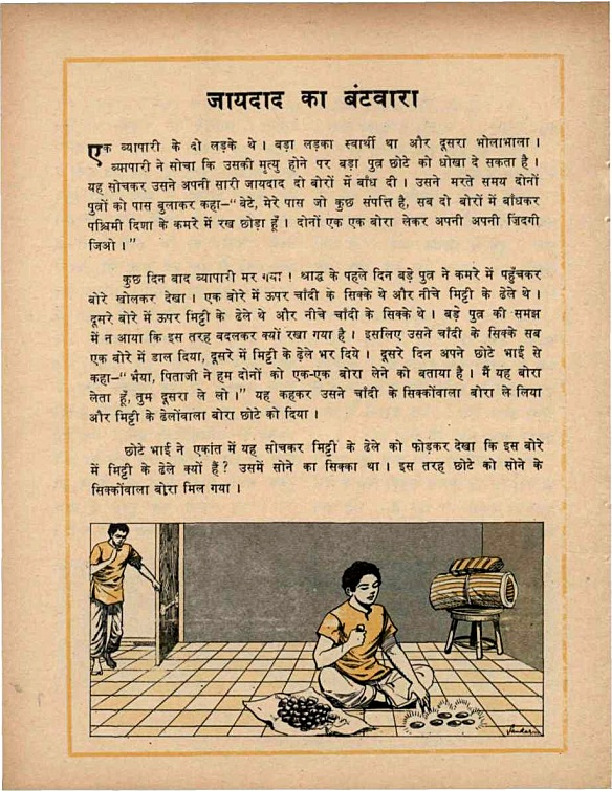 जायदाद का बंटवारा
एक व्यापारी के दो लड़के थे । बड़ा लड़का स्वार्थी था और दूसरा भोलाभाला ।
व्यापारी ने सोचा कि उसकी मृत्यु होने पर बड़ा पुत्र छोटे को धोखा दे सकता है ।
यह सोचकर उसने अपनी सारी जायदाद दो बोरों में बाँध दी । उसने मरते समय दोनों
पुत्रों को पास बुलाकर कहा–“ बेटे, मेरे पास जो कुछ संपत्ति है, सब दो बोरों में बाँधकर
पश्चिमी दिशा के कमरे में रख छोड़ा हूँ । दोनों एक एक बोरा लेकर अपनी अपनी ज़िंदगी
जिओ । ”
कुछ दिन बाद व्यापारी मर गया । श्राद्ध के पहले दिन बड़े पुत्र ने कमरे में पहुँचकर
बोरे खोलकर देखा । एक बोरे में ऊपर चांदी के सिक्के थे और नीचे मिट्टी के ढेले थे ।
दूसरे बोरे में ऊपर मिट्टी के ढेले थे और नीचे चांदी के सिक्के थे । बड़े पुत्र की समझ
में न आया कि इस तरह बदलकर क्यों रखा गया है । इसलिए उसने चाँदी के सिक्के सब
एक बोरे में डाल दिया, दूसरे में मिट्टी के ढ़ेले भर दिये । दूसरे दिन अपने छोटे भाई से
कहा–“ भैया, पिताजी ने हम दोनों को एक-एक बोरा लेने को बताया है । मैं यह बोरा
लेता हूँ, तुम दूसरा ले लो । ” यह कहकर उसने चाँदी के सिक्कोंवाला बोरा ले लिया
और मिट्टी के ढेलोंवाला बोरा छोटे को दिया ।
छोटे भाई ने एकांत में यह सोचकर मिट्टी के ढेले को फोड़कर देखा कि इस बोरे
में मिट्टी के ढेले क्यों हैं ? उसमें सोने का सिक्का था । इस तरह छोटे को सोने के
सिक्कोंवाला बोरा मिल गया ।